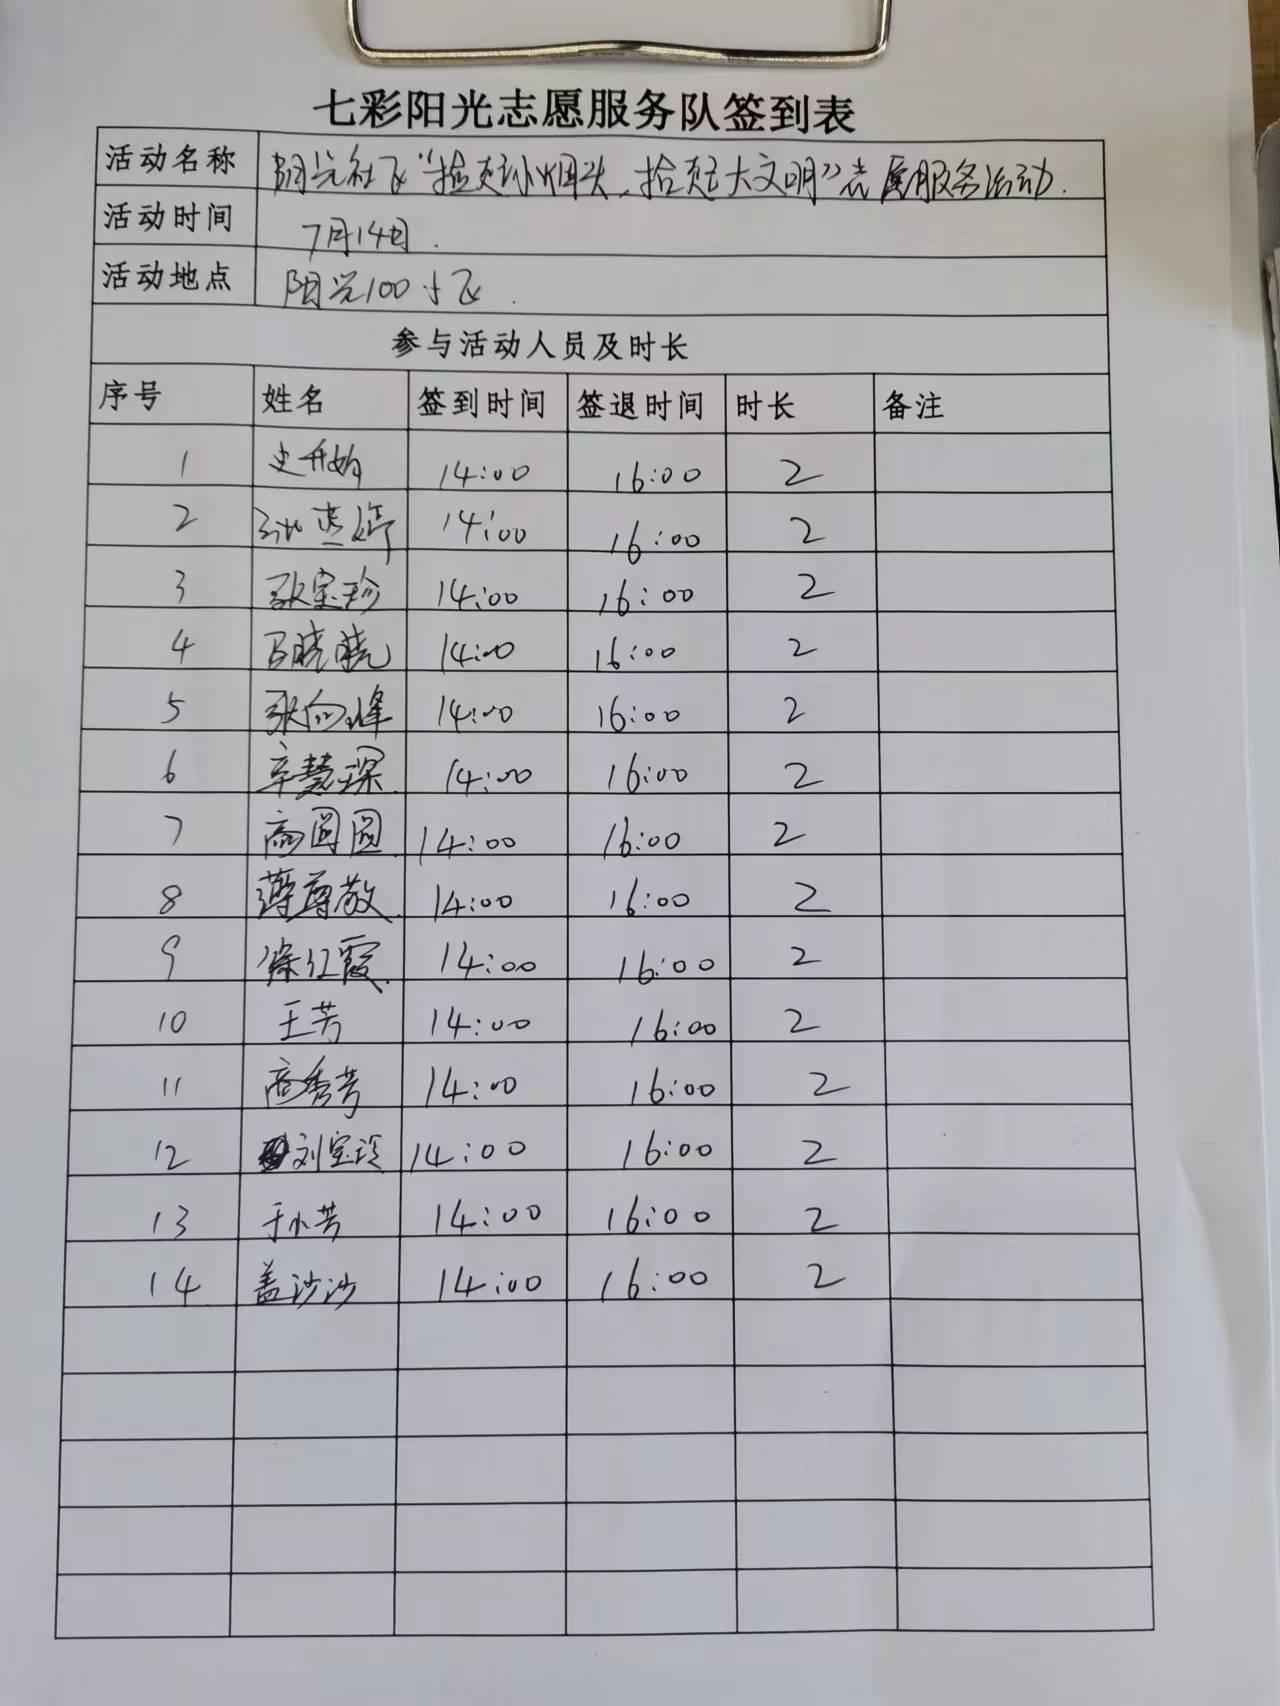 七彩阳光志愿服务队签到表
活动名称 阳光社区“捡走小烟头,捡走大文明”志愿服务活动.
活动时间 7月14日.
活动地点 阳光100小区.
参与活动人员及时长
序号 姓名 签到时间 签退时间 时长 备注
1 史开娟 14:00 16:00 2
2 14:00 16:00 2
3 张宝珍 14:00 16:00 2
4 吕晓晓 14:00 16:00 2
5 张向峰 14:00 16:00 2
6 辛慧琛 14:00 16:00 2
7 高圆圆 14:00 16:00 2
8 薄尊敬 14:00 16:00 2
9 徐红霞 14:00 16:00 2
10 王芳 14:00 16:00 2
11 高秀芳 14:00 16:00 2
12 刘宝玲 14:00 16:00 2
13 于小芳 14:00 16:00 2
14 盖沙沙 14:00 16:00 2